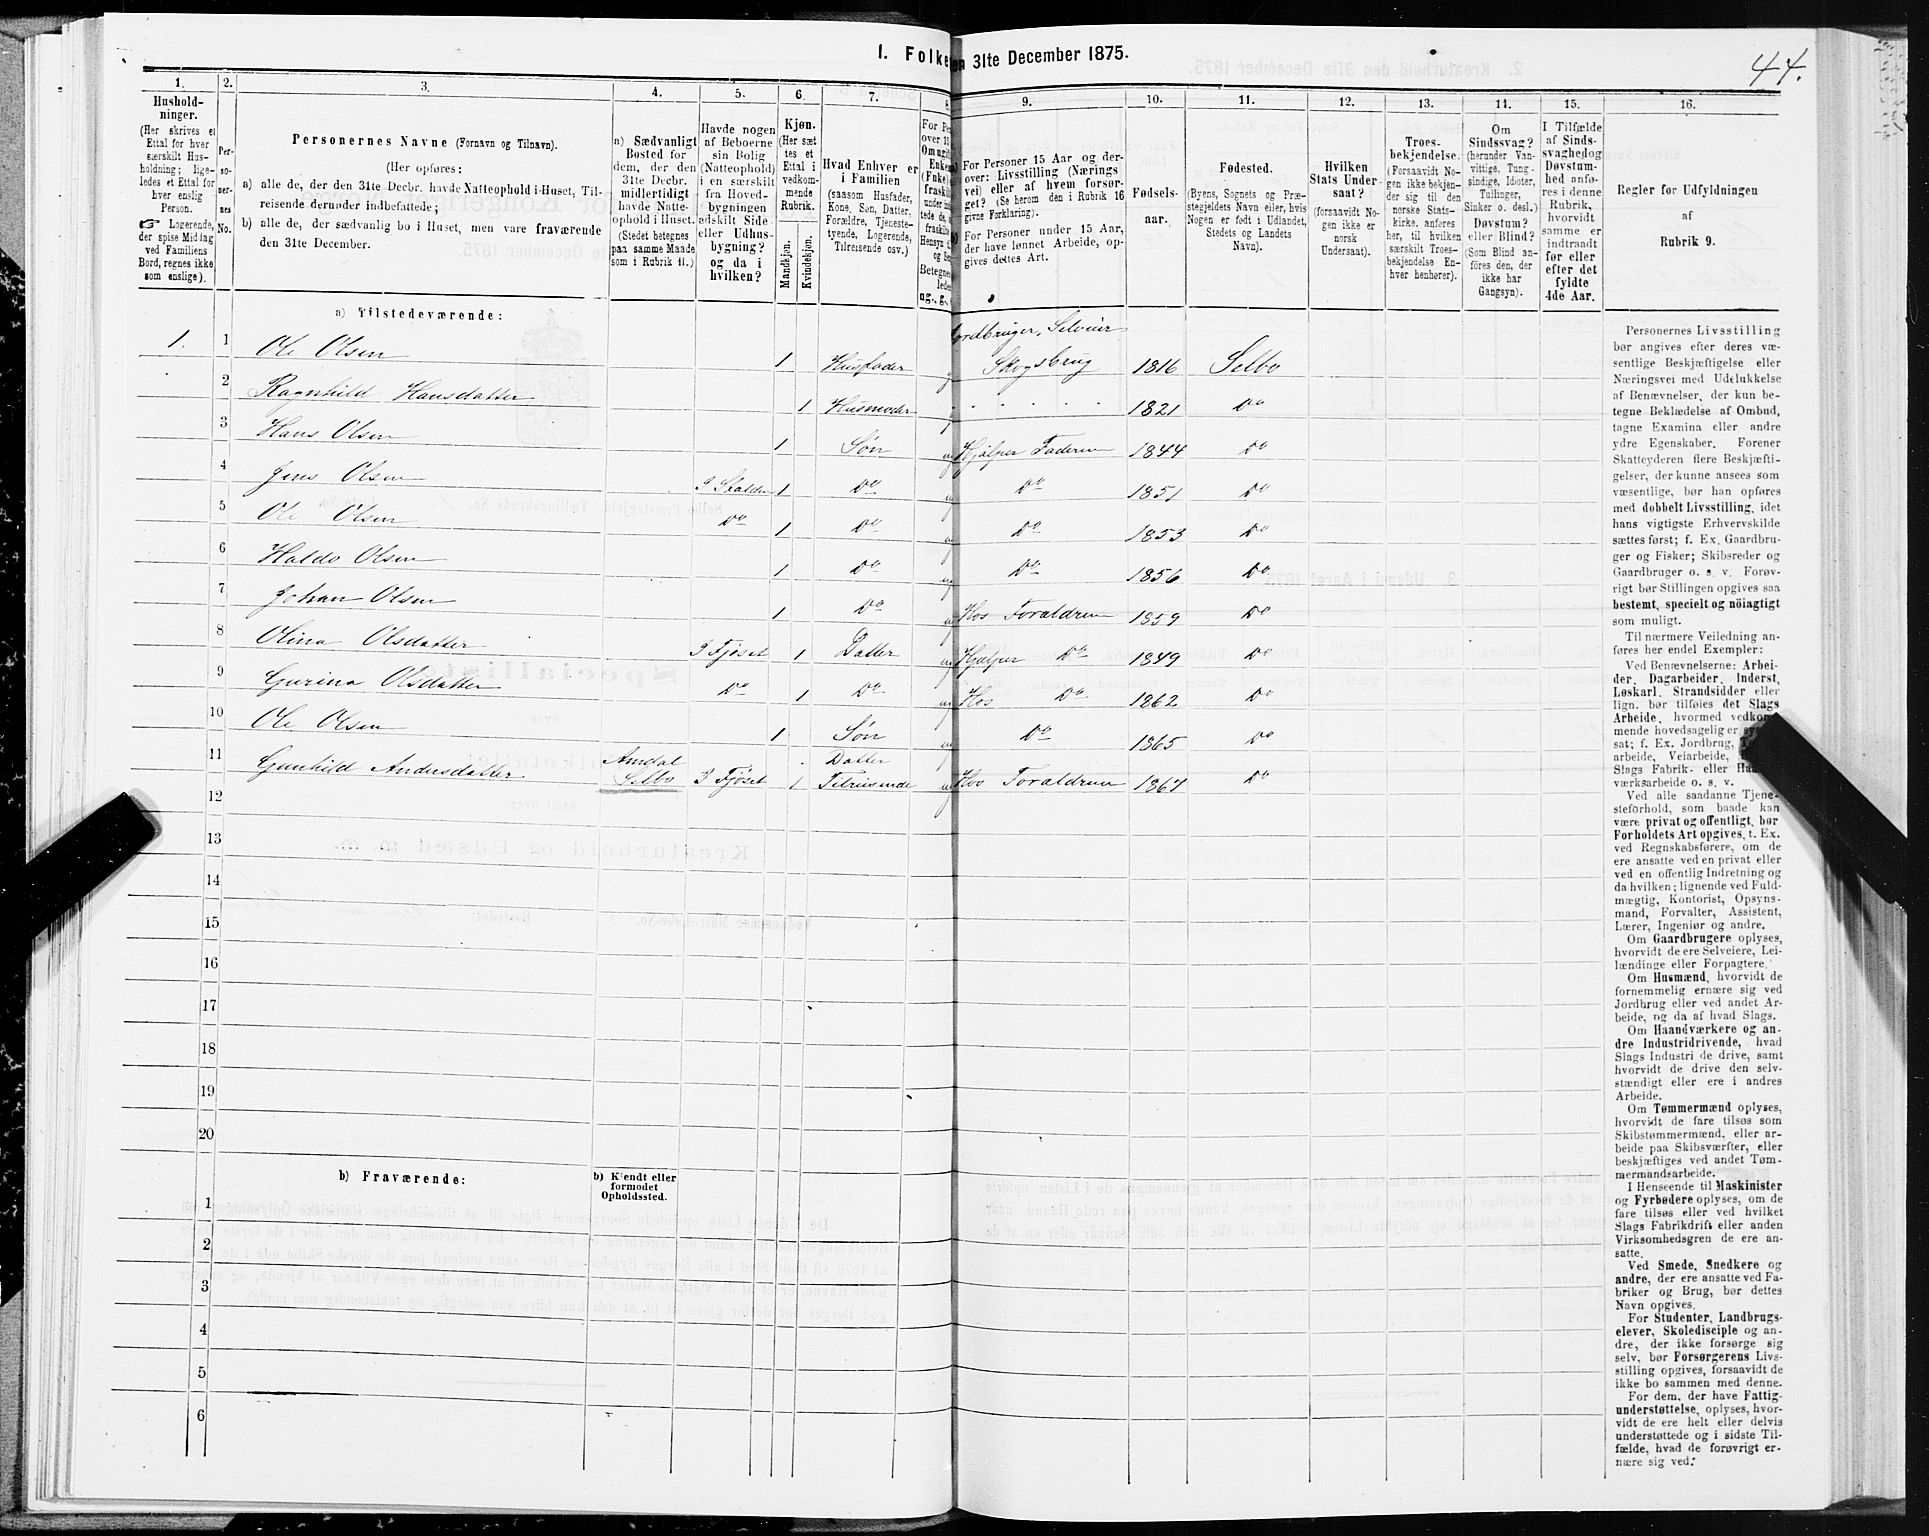 1. Folke
en 31te December 1875.
44.
1.
Hushold-
ninger.
(Her skrives et
Ettal for hver
særskilt Hus-
holdning; lige-
ledes et Ettal for
hver enslig
Person.
☞ Logerende,
der spise Middag
ved Familiens
Bord, regnes ikke
som enslige).
2.
Per-
so-
ner-
nes
No.
3.
Personernes Navne (Fornavn og Tilnavn).
(Her opføres:
a) alle de, der den 31te Decbr. havde Natteophold i Huset, Til-
reisende derunder indbefattede;
b) alle de, der sædvanlig bo i Huset, men vare fraværende
den 31te December.
4.
a) Sædvanligt
Bosted for
dem, der den
31te Decbr.
midlertidigt
havde Natte-
ophold i Huset.
(Stedet betegnes
paa samme Maade
som i Rubrik 11.)
5.
Havde nogen
af Beboerne
sin Bolig
(Natteophold)
i en særskilt
fra Hoved-
bygningen
adskilt Side-
eller Udhus-
bygning?
og da i
hvilken?
6.
Kjøn.
(Her sæt-
tes et
Ettal i
vedkom-
mende
Rubrik.
Mandkjøn.
Kvindekjøn.
7.
Hvad Enhver er
i Familien
(saasom Husfader,
Kone, Søn, Datter,
Forældre, Tjeneste-
tyende, Logerende,
Tilreisende osv.)
8
For Pe
over 15
Om ugift
Enkem
(Enke)
fraskilt
under in
tede, de
fraskilte
Hensyn t
og
Betegne
lede
ug., g.,
9.
For Personer 15 Aar og der-
over: Livsstilling (Nærings-
vei) eller af hvem forsør-
get? (Se herom den i Rubrik 16
givne Forklaring).
For Personer under 15 Aar,
der have lønnet Arbeide, op-
gives dettes Art.
10.
Fødsels-
aar.
11.
Fødested.
(Byens, Sognets og Præ-
stegjeldets Navn eller, hvis
Nogen er født i Udlandet,
Stedets og Landets
Navn).
12.
Hvilken
Stats Under-
saat?
(forsaavidt No-
gen ikke er
norsk
Undersaat).
13.
Troes-
bekjendelse.
(Forsaavidt No-
gen ikke bekjen-
der sig til den
norske Stats-
kirke, anføres
her, til hvilken
særskilt Troes-
bekjendelse En-
hver henhører).
14.
Om
Sindssvag?
(herunder Van-
vittige, Tung-
sindige, Idioter,
Tullinger,
Sinker o. desl.)
Døvstum?
eller Blind?
(Som Blind an-
føres den, der
ikke har
Gangsyn).
15.
I Tilfælde
af Sinds-
svaghed og
Døvstum-
hed anfø-
res i denne
Rubrik,
hvorvidt
samme er
indtraadt
før eller
efter det
fyldte
4de Aar.
16.
Regler for Udfyldningen
af
Rubrik 9.
a) Tilstedeværende:
1. 1 Ole Olsen 1 Husfader g Jordbruger, Selveier Skogsbrug 1816 Selbo
2 Ragnhild Hansdatter 1 Husmoder g 1821 Do
3 Hans Olsen 1 Søn ug Hjælper Faderen 1844 Do
4 Jens Olsen I Stalden 1 Do ug Do 1851 Do
5 Ole Olsen Do 1 Do ug Do 1853 Do
6 Haldo Olsen 1 Do ug Do 1856 Do
7 Johan Olsen 1 Do ug Hos Foraldrene 1859 Do
8 Olina Olsdatter I Fjøset 1 Datter ug Hjælper Do 1849 Do
9 Gurina Olsdatter Do 1 Do ug Hos Do 1862 Do
10 Ole Olsen 1 Søn ug Do 1865 Do
11 Gunhild Andersdatter Amdal Selbo I Fjøset 1 Datter Tilreisende ug Hos Foraldrene 1864 Do
12
13
14
15
16
17
18
19
20
b) Fraværende:
b) Kjendt eller
formodet
Opholdssted.
1
2
3
4
5
6
Personernes Livsstilling
bør angives efter deres væ-
sentlige Beskjæftigelse eller
Næringsvei med Udelukkelse
af Benævnelser, der kun be-
tegne Beklædelse af Ombud,
tagne Examina eller andre
ydre Egenskaber. Forener
Skatteyderen flere Beskjæfti-
gelser, der kunne ansees som
væsentlige, bør han opføres
med dobbelt Livsstilling, idet
hans vigtigste Erhvervskilde
sættes først; f. Ex. Gaardbru-
ger og Fisker; Skibsreder og
Gaardbruger o. s. v. Forøv-
rigt bør Stillingen opgives saa
bestemt, specielt og nöiagtigt
som muligt.
Til nærmere Veiledning an-
føres her endel Exempler:
Ved Benævnelserne: Arbei-
der, Dagarbeider, Inderst,
Løskarl, Strandsidder eller
lign. bør tilføies det Slags
Arbeide, hvormed vedkom-
mende hovedsagelig er sys
sat; f. Ex. Jordbrug, T
arbeide, Veiarbeide,
Slags Fabrik- eller Haa
værksarbeide o. s. v.
Ved alle saadanne Tjene-
steforhold, som baade kan
være privat og offentligt, bør
Forholdets Art opgives, t. Ex.
ved Regnskabsførere, om de
ere ansatte ved en privat eller
ved en offentlig Indretning og
da hvilken; lignende ved Fuld-
mægtig, Kontorist, Opsyns-
mand, Forvalter, Assistent,
Lærer, Ingeniør og andre.
Om Gaardbrugere oplyses,
hvorvidt de ere Selveiere, Lei-
lændinge eller Forpagtere.
Om Husmænd, hvorvidt de
fornemmelig ernære sig ved
Jordbrug eller ved andet Ar-
beide, og da af hvad Slags.
Om Haandværkere og an-
dre Industridrivende, hvad
Slags Industri de drive, samt
hvorvidt de drive den selv-
stændigt eller ere i andres
Arbeide.
Om Tømmermænd oplyses,
hvorvidt de fare tilsøs som
Skibstømmermænd, eller ar-
beide paa Skibsværfter, eller
beskjæftiges ved andet Tøm-
mermandsarbeide.
I Henseende til Maskinister
og Fyrbødere oplyses, om de
fare tilsøs eller ved hvilket
Slags Fabrikdrift eller anden
Virksomhedsgren de ere an-
satte.
Ved Smede, Snedkere og
andre, der ere ansatte ved Fa-
briker og Brug, bør dettes
Navn opgives.
For Studenter, Landbrugs-
elever, Skoledisciple og an-
dre, der ikke forsørge sig
selv, bør Forsørgerens Livs-
stilling opgives, forsaavidt de
ikke bo sammen med denne.
For dem, der have Fattig-
understøttelse, oplyses, hvor-
vidt de ere helt eller delvis
understøttede og i sidste Til-
fælde, hvad de forøvrigt er-
nære sig ved.